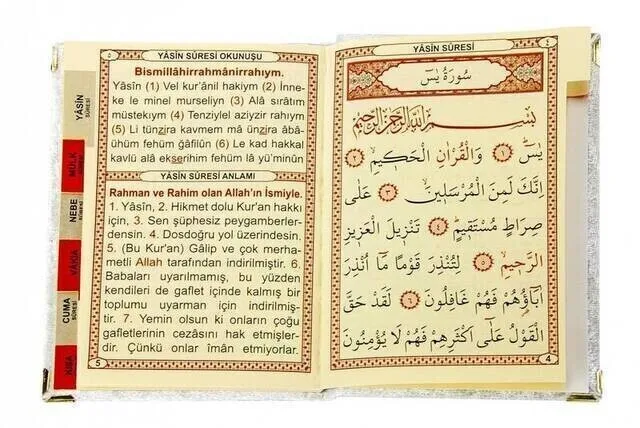 YÂSİN SÛRESİ OKUNUŞU
Bismillâhirrahmânirrahıym.
Yâsîn (1) Vel kur'ânil hakiym (2) İnne-
ke le minel murseliyn (3) Alâ sırâtım
müstekıym (4) Tenziylel aziyzir rahıym
(5) Li tünzira kavmem mâ ünzira âbâ-
ühüm fehüm ğâfilûn (6) Le kad hakkal
kavlü alâ ekserihim fehüm lâ yü'minûn
YÂSİN SÛRESİ ANLAMI
Rahman ve Rahim olan Allah'ın İsmiyle.
1. Yâsîn, 2. Hikmet dolu Kur'an hakkı
için, 3. Sen şüphesiz peygamberler-
densin. 4. Dosdoğru yol üzerindesin.
5. (Bu Kur'an) Gâlip ve çok merha-
metli Allah tarafından indirilmiştir. 6.
Babaları uyarılmamış, bu yüzden
kendileri de gaflet içinde kalmış bir
toplumu uyarman için indirilmiş-
tir. 7. Yemin olsun ki onların çoğu
gafletlerinin cezasını hak etmişler-
dir. Çünkü onlar îmân etmiyorlar.
5
YÂSİN
SÛRESİ
MÜLK
SÛRESİ
NEBE
SÛRESİ
VÂKIA
CUMA
SÛRESİ
KISA
٤
YÂSİN SÛRESİ
سُورَةُ يٰسٓ
بِسْمِ اللّٰهِ الرَّحْمٰنِ الرَّحِيمِ
يٰسٓ ١ وَالْقُرْاٰنِ الْحَكِيمِ ٢
اِنَّكَ لَمِنَ الْمُرْسَلِينَ ٣ عَلٰى
صِرَاطٍ مُسْتَقِيمٍ ٤ تَنْزِيلَ الْعَزِيزِ
الرَّحِيمِ ٥ لِتُنْذِرَ قَوْمًا مَٓا اُنْذِرَ
اٰبَٓاؤُهُمْ فَهُمْ غَافِلُونَ ٦ لَقَدْ حَقَّ
الْقَوْلُ عَلٰٓى اَكْثَرِهِمْ فَهُمْ لَا يُؤْمِنُونَ
4